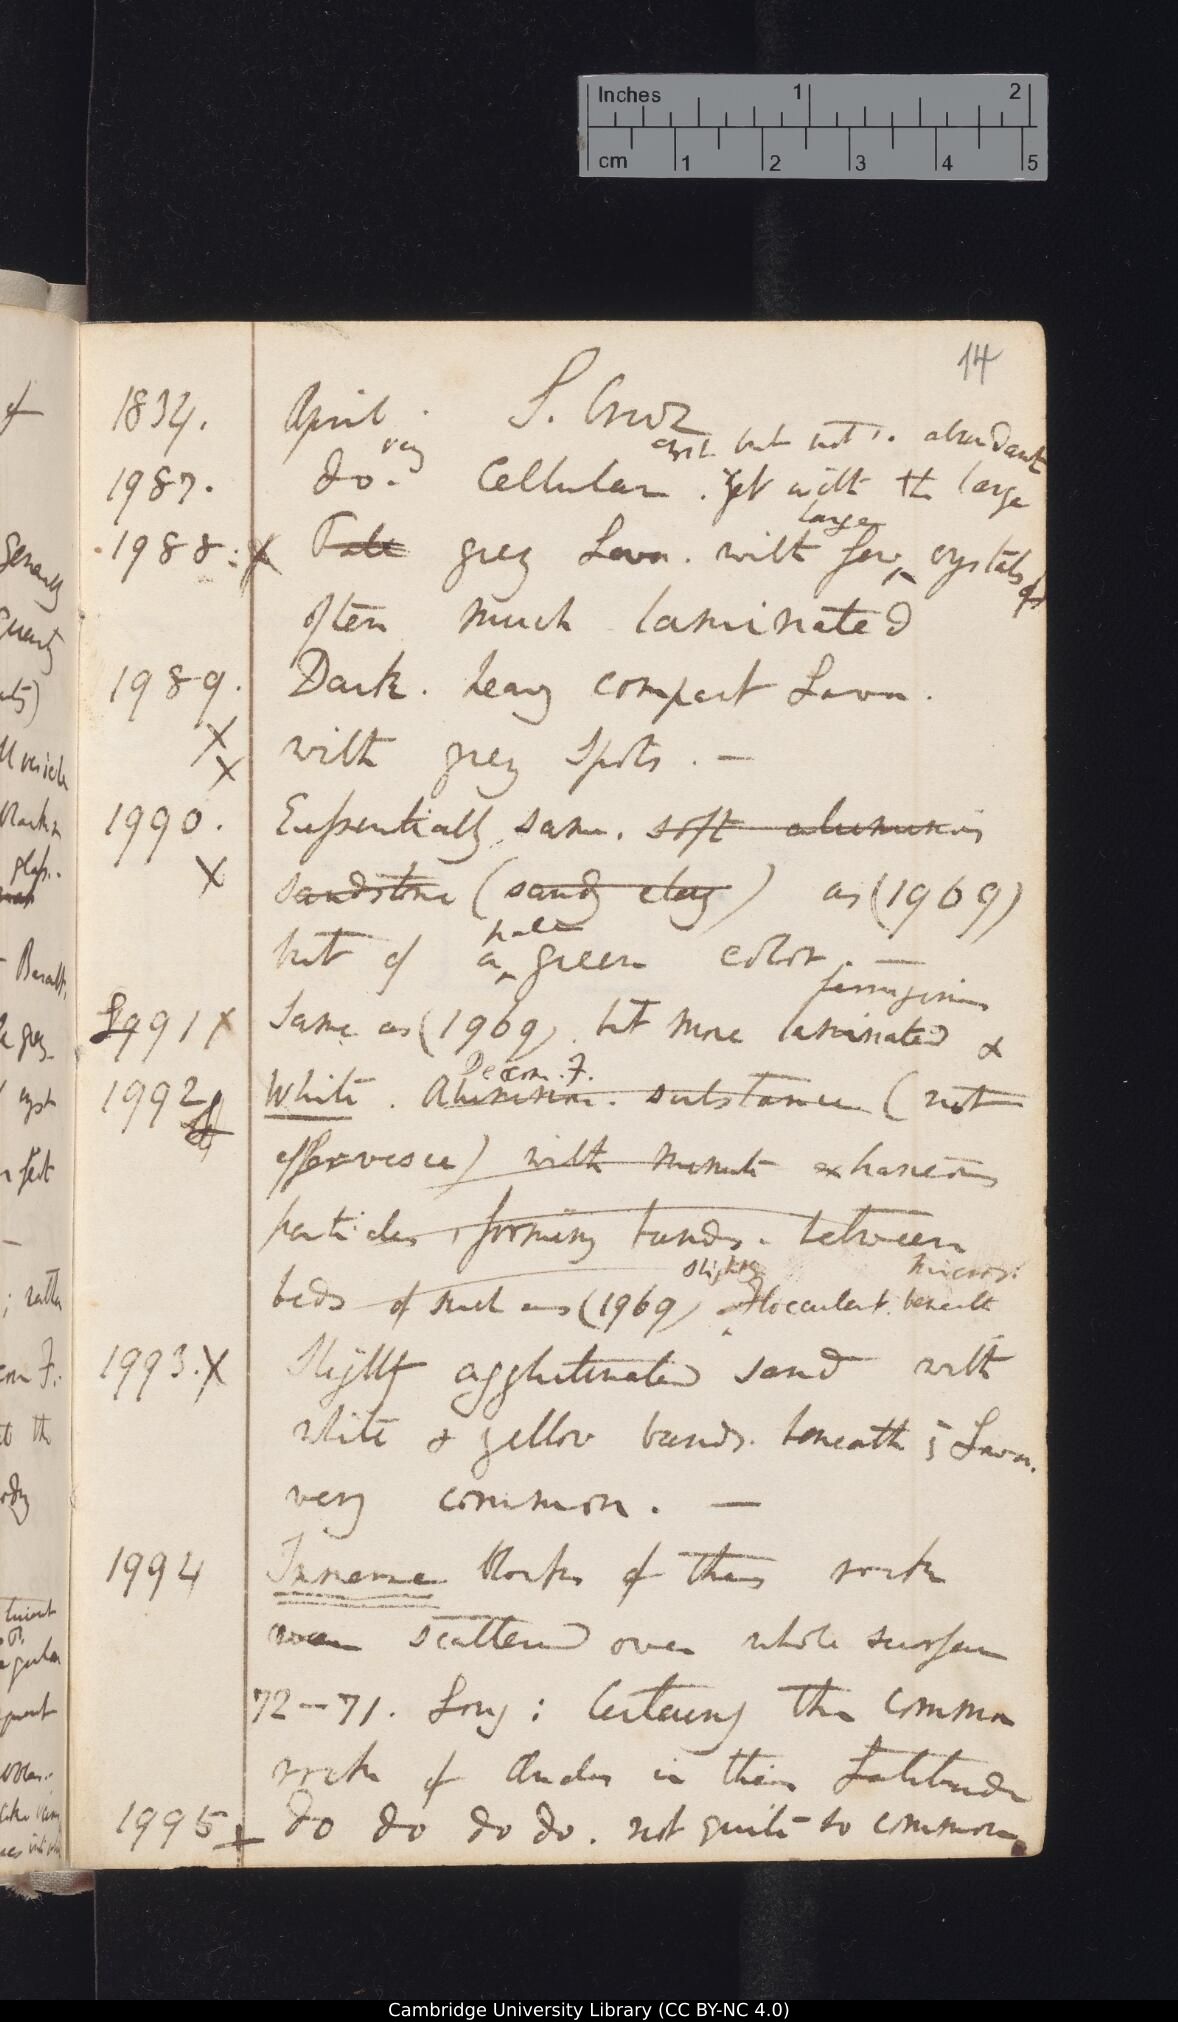 Inches 1 2
cm 1 2 3 4 5
14
1834. April. S. Cruz
very cryst. but not abundant
1987. do. Cellular. yet with the large
large
1988: X Pale grey Lava. with few crystals
often much laminated
1989. Dark. heavy compact Lava.
X with grey spots. —
X
1990. Essentially same. soft aluminous
X sandstone (sandy clay) as (1969)
pale
but of a green color. —
ferruginous
1991 X Same as (1969) but more laminated &
Decom. F.
1992 White. Aluminous. substance (not
effervesce) with minute extraneous
particles, forming bands. between
slightly micros:
beds of such as (1969) Flocculent beneath
1993. X Slightly agglutinated sand with
white & yellow bands. beneath Lava.
very common. —
1994 Immense blocks of this rock
were scattered over whole surface
72–71. Long: Certainly the common
rock of Andes in this Latitude
1995 + do do do do. not quite so common
of
Generally
vesicle
glass.
Basalt,
rather
the
Cambridge University Library (CC BY-NC 4.0)